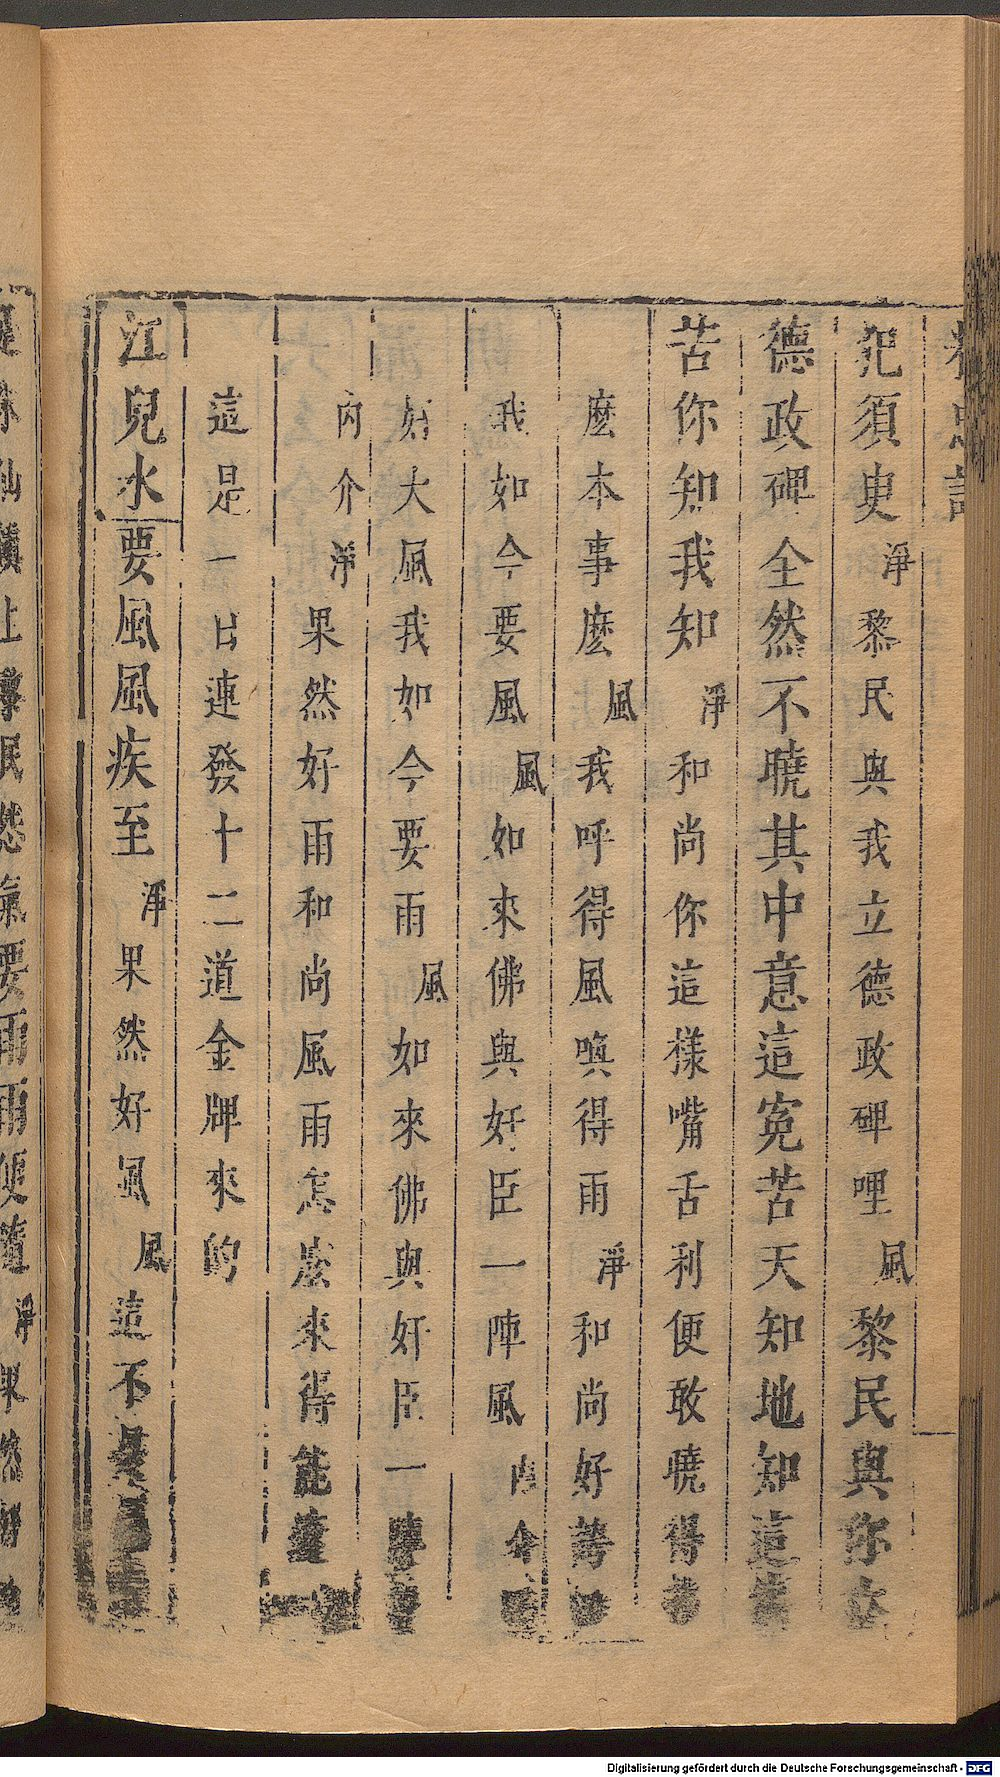 犯須臾淨黎民與我立德政碑哩風黎民與你立
德政碑全然不曉其中意這寃苦天知地知這
苦你知我知淨和尚你這樣嘴舌利便敢曉得
麽本事麽風我呼得風喚得雨淨和尚好
我如今要風風如來佛與奸臣一陣風內介
好大風我如今要雨風如來佛與奸臣一陣
內介淨果然好雨和尚風雨怎麽來得能
這是一日連發十二道金牌來的
江兒水要風風疾至淨果然好風風這不是
Digitalisierung gefördert durch die Deutsche Forschungsgemeinschaft - DFG